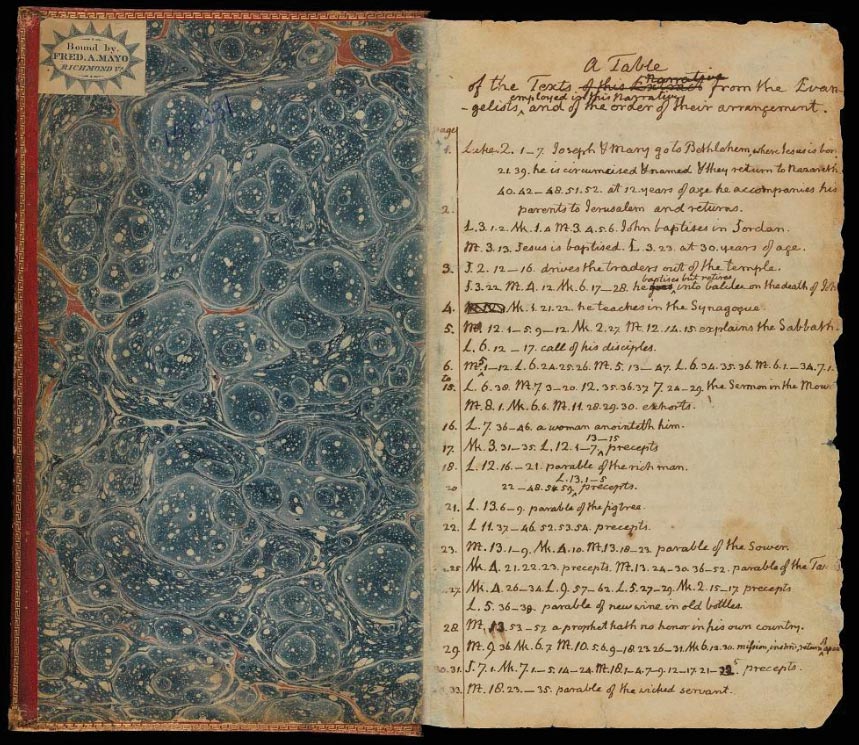 Bound by.
FRED. A. MAYO
RICHMOND Va.
A Table
of the Texts of this Extract Narrative from the Evan-
employed in this Narrative
-gelists, and of the order of their arrangement.
page
1. Luke. 2. 1–7. Joseph & Mary go to Bethlehem, where Jesus is born
21.39. he is circumcised & named & they return to Nazareth
40.42–48.51.52. at 12 years of age he accompanies his
2. parents to Jerusalem and returns.
L.3.1.2. Mk.1.4. Mt.3.4.5.6. John baptises in Jordan.
Mt.3.13. Jesus is baptised. L.3.23. at 30. years of age.
3. J.2.12–16. drives the traders out of the temple.
baptises but retires
J.3.22. Mt.4.12. Mk.6.17–28. he goes into Galilee on the death of John
4. Mk.1.21.22. he teaches in the Synagogue.
5. Mt.12.1–5.9–12. Mk.2.27. Mt.12.14.15. explains the Sabbath.
L.6.12–17. call of his disciples.
6. Mt.5.1–12. L.6.24.25.26. Mt.5.13–47. L.6.34.35.36. Mt.6.1–34.7.1.
to
15. L.6.38. Mt.7.3–20.12.35.36.37. 7.24–29. the Sermon in the Mou
Mt.8.1. Mk.6.6. Mt.11.28.29.30. exhorts.
16. L.7.36–46. a woman anointeth him.
13–15
17. Mk.3.31–35. L.12.1–7. precepts
18. L.12.16–21. parable of the rich man.
L.13.1–5
20 22–48.54.59. precepts.
21. L.13.6–9. parable of the figtree.
22. L.11.37–46.52.53.54. precepts.
23. Mt.13.1–9. Mk.4.10. Mt.13.18–23. parable of the Sower.
25 Mk.4.21.22.23. precepts. Mt.13.24–30.36–52. parable of the Ta
27 Mk.4.26–34. L.9.57–62. L.5.27–29. Mk.2.15–17. precepts
L.5.36–38. parable of new wine in old bottles.
28. Mt.13.53–57. a prophet hath no honor in his own country.
29. Mt.9.36. Mk.6.7. Mt.10.5.6.9–18.23.26–31. Mk.6.12.30. mission, instrns, return
30.31. J.7.1. Mk.7.1–5.14–24. Mt.18.1–4.7–9.12–17.21–35. precepts.
33. Mt.18.23–35. parable of the wicked servant.